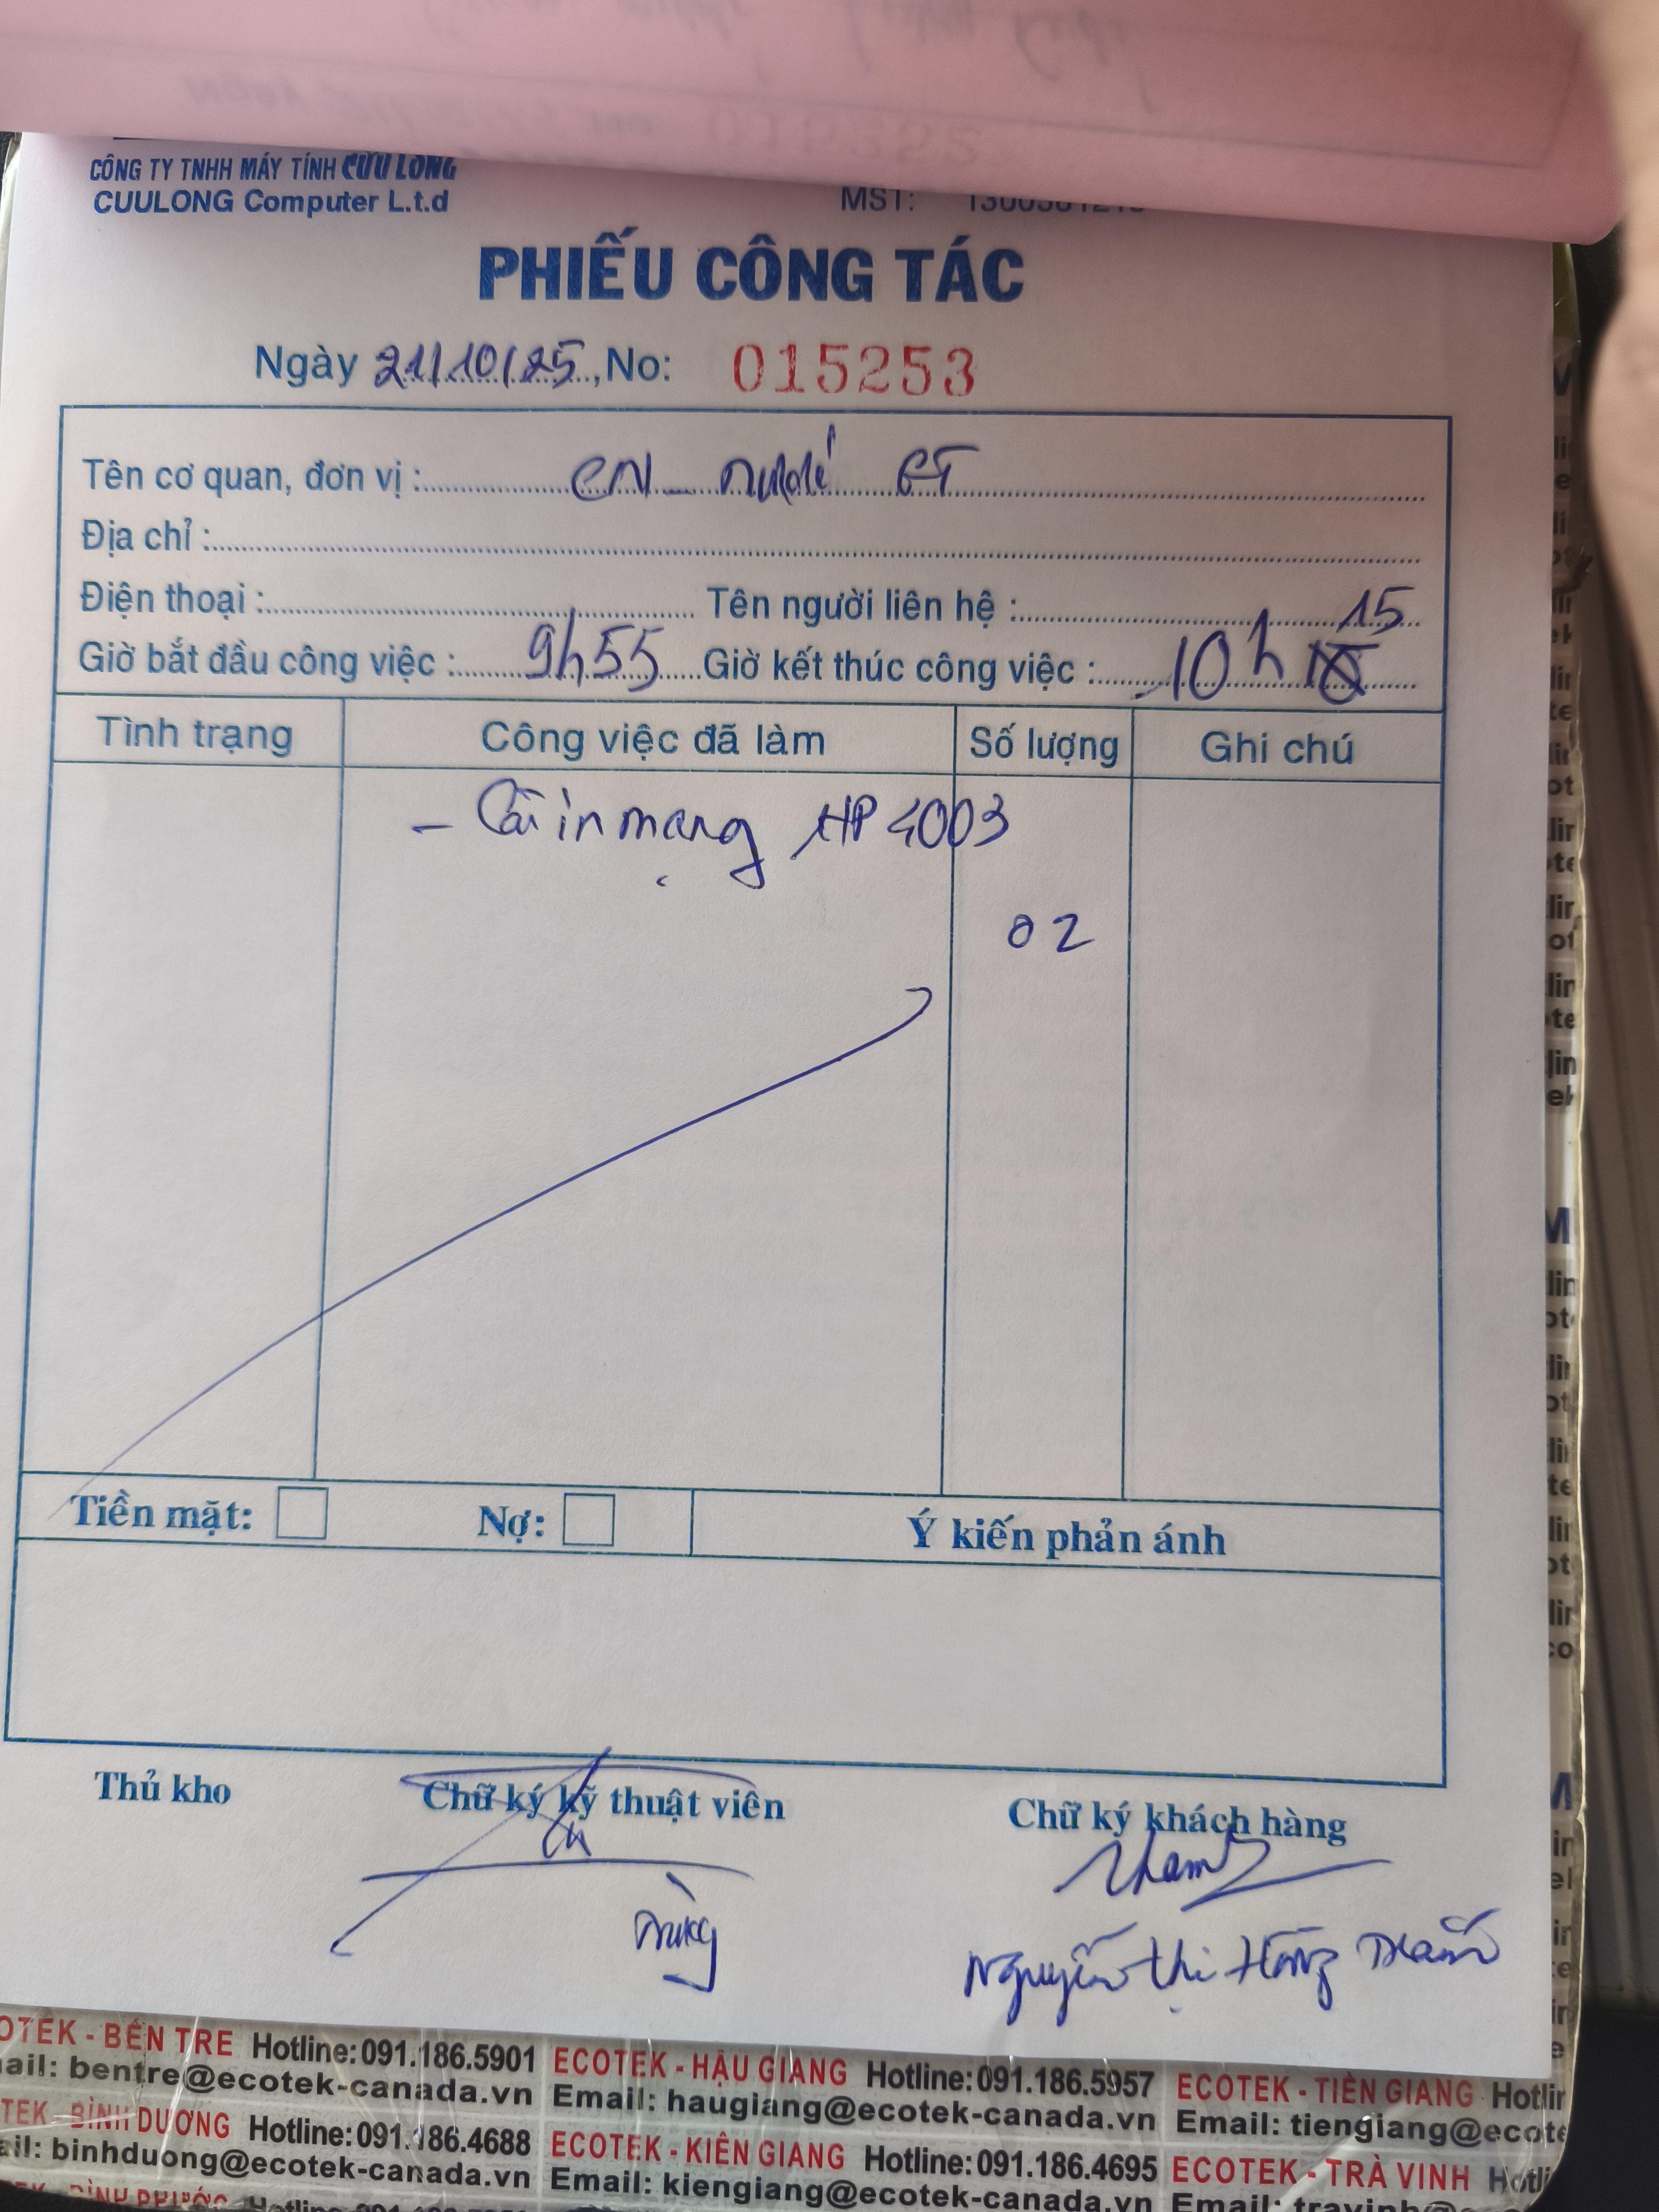 CÔNG TY TNHH MÁY TÍNH CỬU LONG
CUULONG Computer L.t.d
MST:
PHIẾU CÔNG TÁC
Ngày 21/10/25, No: 015253
Tên cơ quan, đơn vị : CN nước BT
Địa chỉ :
Điện thoại : Tên người liên hệ :
15
Giờ bắt đầu công việc : 9h55 Giờ kết thúc công việc : 10h
Tình trạng Công việc đã làm Số lượng Ghi chú
- Cài in mạng HP 4003
02
Tiền mặt: Nợ: Ý kiến phản ánh
Thủ kho Chữ ký kỹ thuật viên Chữ ký khách hàng
Nguyễn Thị Hồng
OTEK - BẾN TRE Hotline: 091.186.5901 ECOTEK - HẬU GIANG Hotline: 091.186.5957 ECOTEK - TIỀN GIANG Hotlin
ail: bentre@ecotek-canada.vn Email: haugiang@ecotek-canada.vn Email: tiengiang@ecote
TEK - BÌNH DƯƠNG Hotline: 091.186.4688 ECOTEK - KIÊN GIANG Hotline: 091.186.4695 ECOTEK - TRÀ VINH Hotli
ail: binhduong@ecotek-canada.vn Email: kiengiang@ecotek-canada.vn Email: travinh@
BÌNH PHƯỚC Hotline